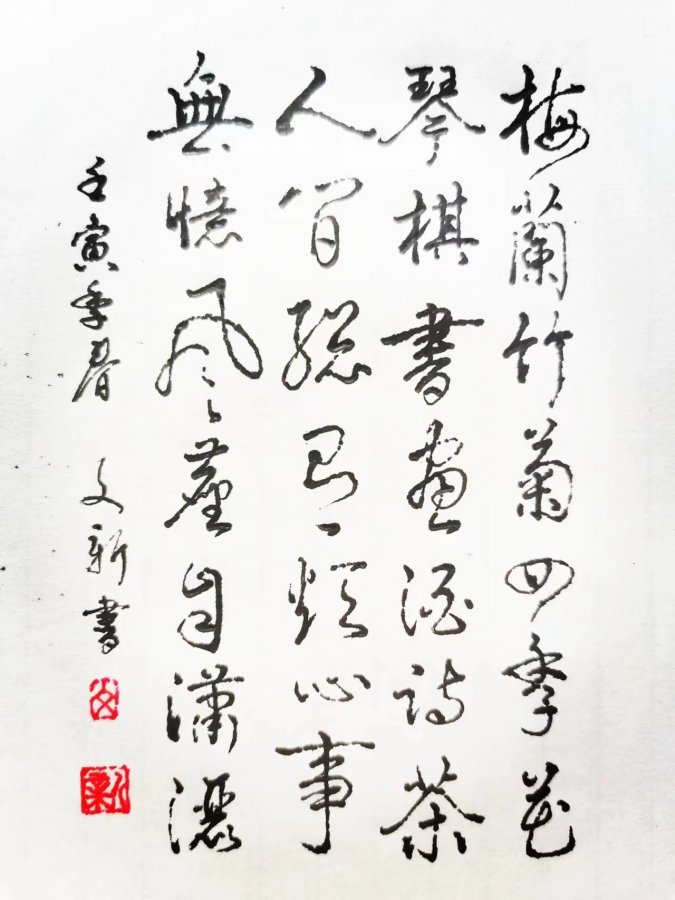 梅蘭竹菊四季花
琴棋書畫酒詩茶
人間總有煩心事
無憶風塵自瀟灑
壬寅季春 文新書
文
新